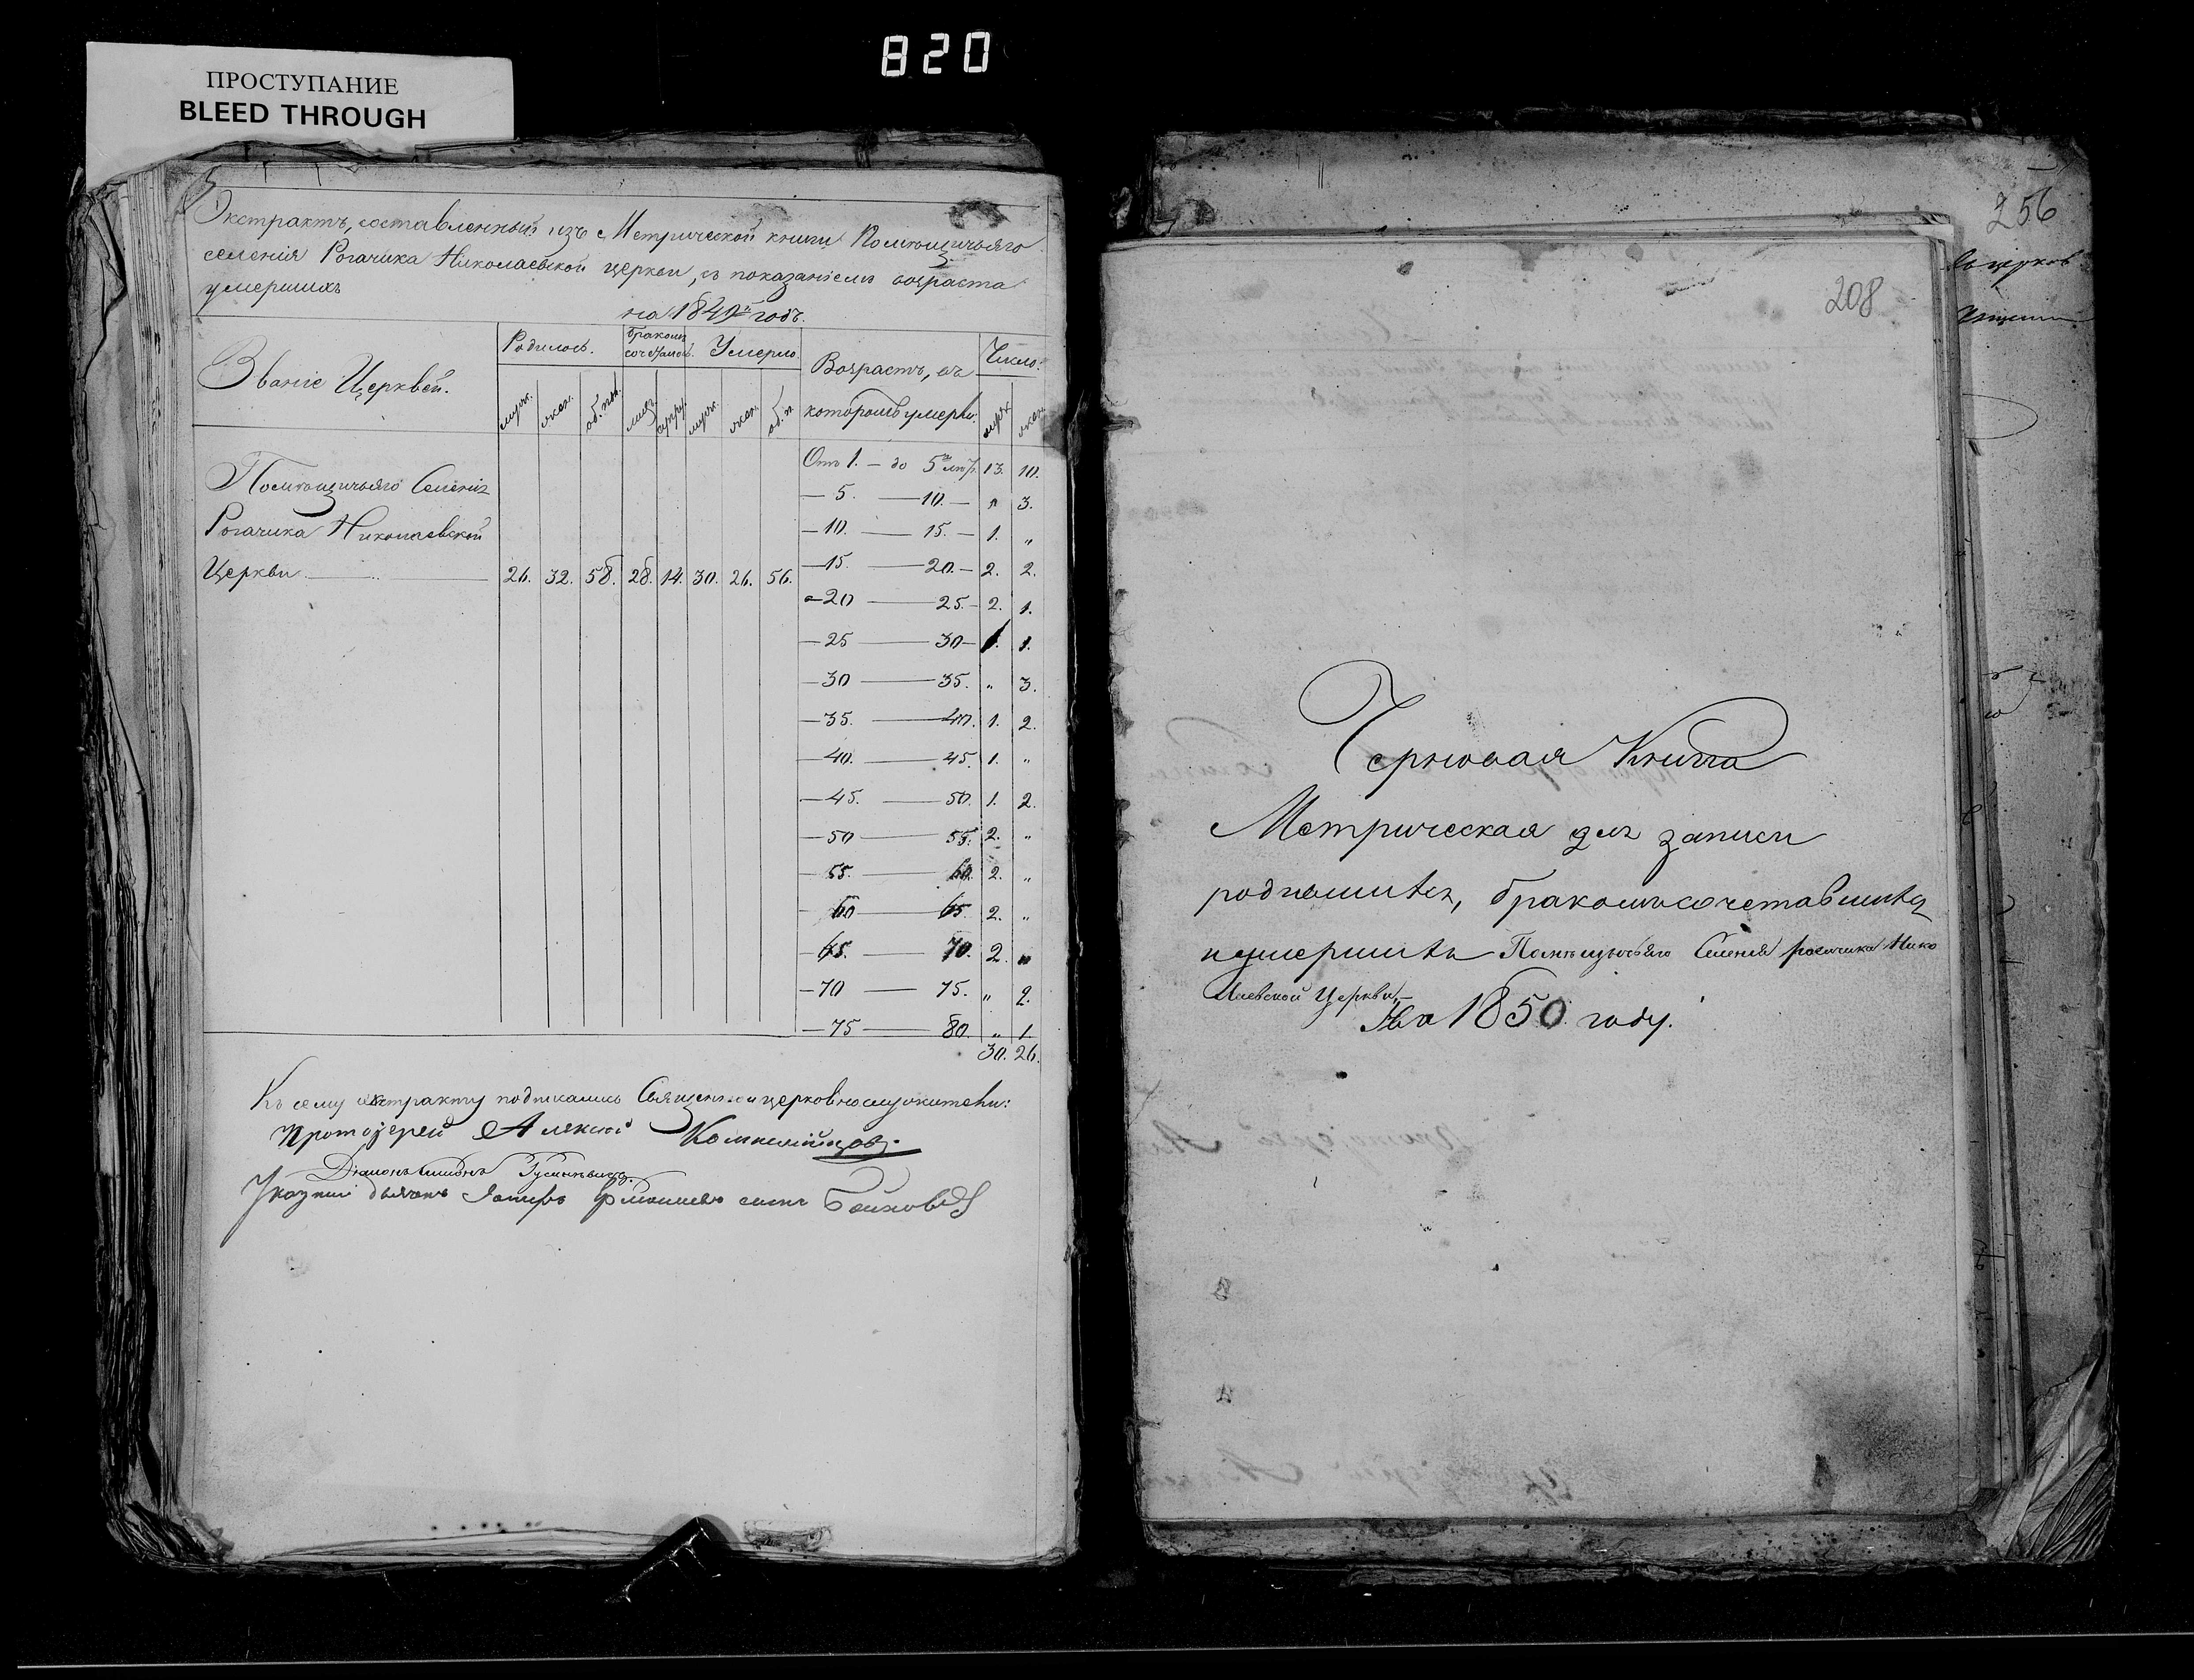 820
ПРОСТУПАНИЕ
BLEED THROUGH
Экстрактъ, составленный изъ Метрической книги Помѣщичьяго
селенія Рогачика Николаевской церкви, съ показаніемъ возраста
умершихъ
на 1849й годъ.
Званіе Церквей.
Родилось.
бракомъ сочеталось.
Умерло.
Возрастъ, въ которомъ умерли.
Число.
муж. жен. об. пол. лицъ супру. муж. жен. об. п. муж. жен.
Помѣщичьяго Селенія
Рогачика Николаевской
Церкви 26. 32. 58. 28. 14. 30. 26. 56.
Отъ 1. — до 5ти лѣтъ 13. 10.
— 5. — 10. — „ 3.
— 10. — 15. — 1. „
— 15. — 20. — 2. 2.
— 20 — 25. — 2. 1.
— 25 — 30 — 1. 1.
— 30 — 35. „ 3.
— 35. — 40. 1. 2.
— 40. — 45. 1. „
— 45. — 50. 1. 2.
— 50 — 55. 2. „
— 55. — 60. 2. „
— 60 — 65. 2. „
— 65. — 70. 2. „
— 70 — 75. „ 2.
— 75 — 80. „ 1.
30. 26.
Къ сему екстракту подписались Священноцерковнослужители:
Протоіерей Алексій
Діаконъ
Указный дьячокъ сынъ
256
208
Черновая Книга
Метрическая для записи
родившихся, бракомъ сочетавшихся
и умершихъ Помѣщичьяго Селенія Рогачика Нико
лаевской Церкви,
На 1850 годъ.